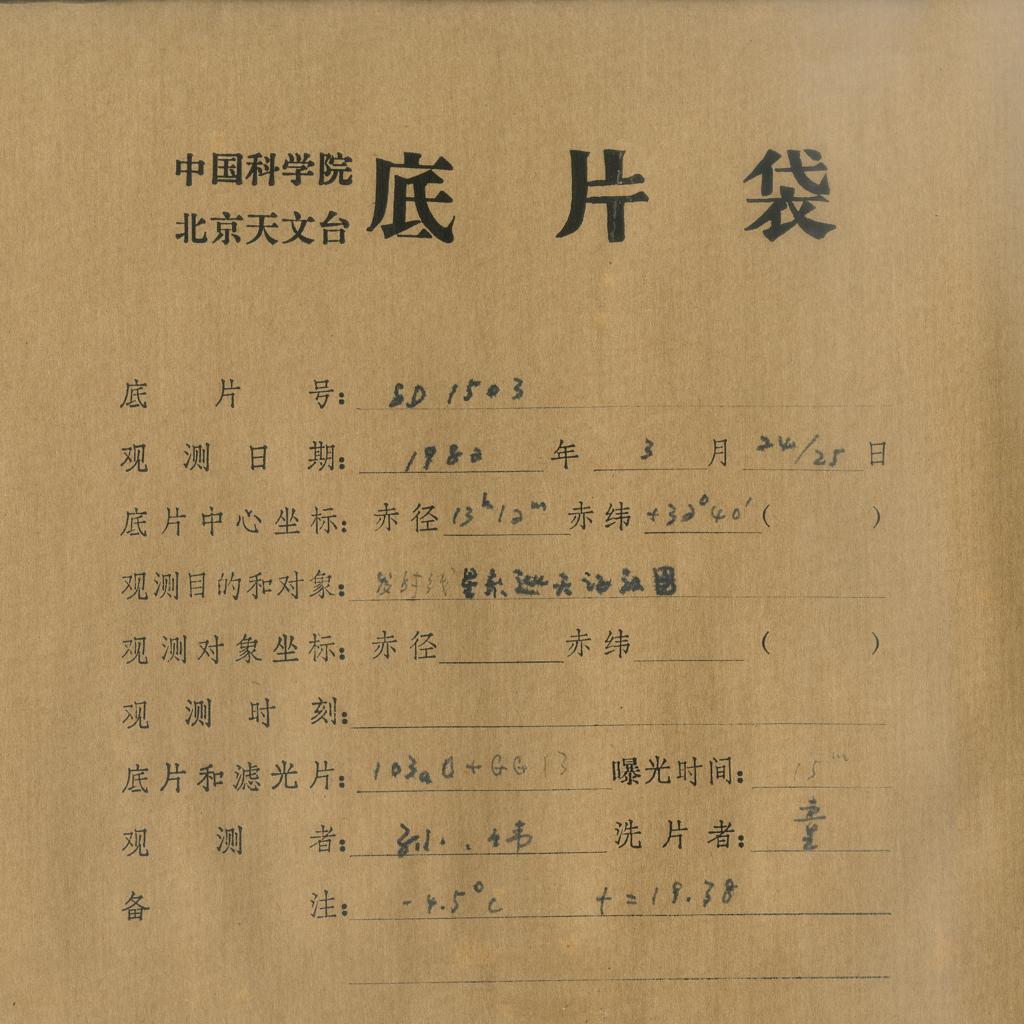 中国科学院
北京天文台
底片袋
底片号: SD 1503
观测日期: 1982 年 3 月 24/25 日
底片中心坐标: 赤径 13h12m 赤纬 +32°40′ ( )
观测目的和对象: 发射线星系巡天证认图
观测对象坐标: 赤径 赤纬 ( )
观测时刻:
底片和滤光片: 103aO+GG13 曝光时间: 15m
观测者: 洗片者: 童
备注: -4.5°C t=19.38